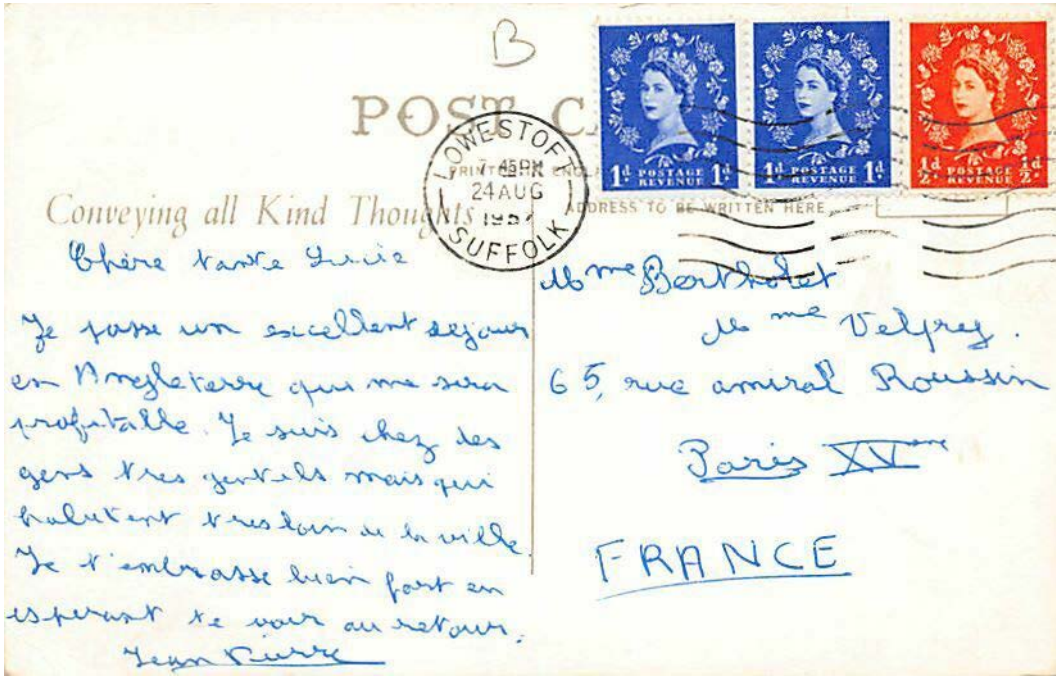 B
POST C
LOWESTOFT
7-45 PM
24 AUG
1957
SUFFOLK
1d POSTAGE REVENUE 1d
1d POSTAGE REVENUE 1d
½d POSTAGE REVENUE ½d.
PRINTED IN ENGL
ADDRESS TO BE WRITTEN HERE
Conveying all Kind Thoughts
Chère tante Lucie
Je passe un excellent sejour
en Angleterre qui me sera
profitable. Je suis chez des
gens tres gentils mais qui
habitent tres loin de la ville.
Je t'embrasse bien fort en
esperant te voir au retour.
Jean Pierre
Mme Bertholet
Mme Velfrey.
65, rue amiral Roussin
Paris XVeme
FRANCE